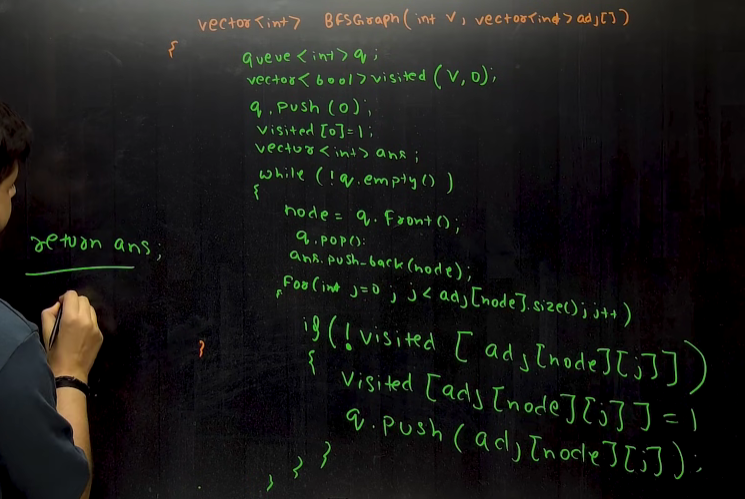 vector<int> BFSGraph(int V, vector<int> adj[])
{
queue<int> q;
vector<bool> visited (V,0);
q.push (0);
visited [0]=1;
vector<int> ans;
while (!q.empty())
{
node = q.front();
q.pop();
ans.push_back(node);
for(int j=0; j< adj[node].size(); j++)
{
if(! visited [ adj[node][j]])
{
visited [adj[node][j]] = 1
q.push (adj[node][j]);
}
}
}
return ans;
}